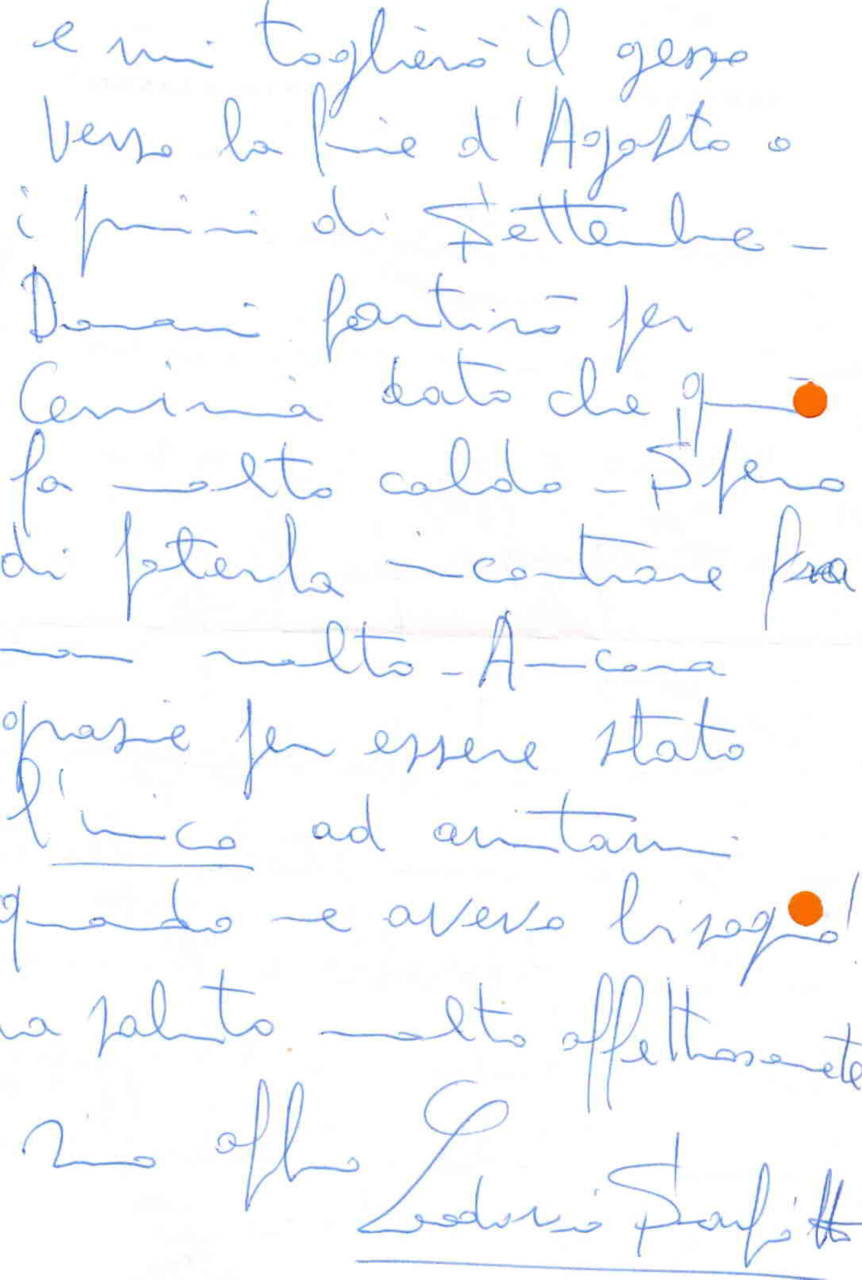 e mi toglierò il gesso
verso la fine d'Agosto o
i primi di Settembre –
Domani partirò per
Cervinia dato che qui
fa molto caldo – Spero
di poterla incontrare fra
non molto – Ancora
grazie per essere stato
l'unico ad aiutarmi
quando ne avevo bisogno!
La saluto molto affettuosamente
suo aff.mo Lodovico Scarfiotti